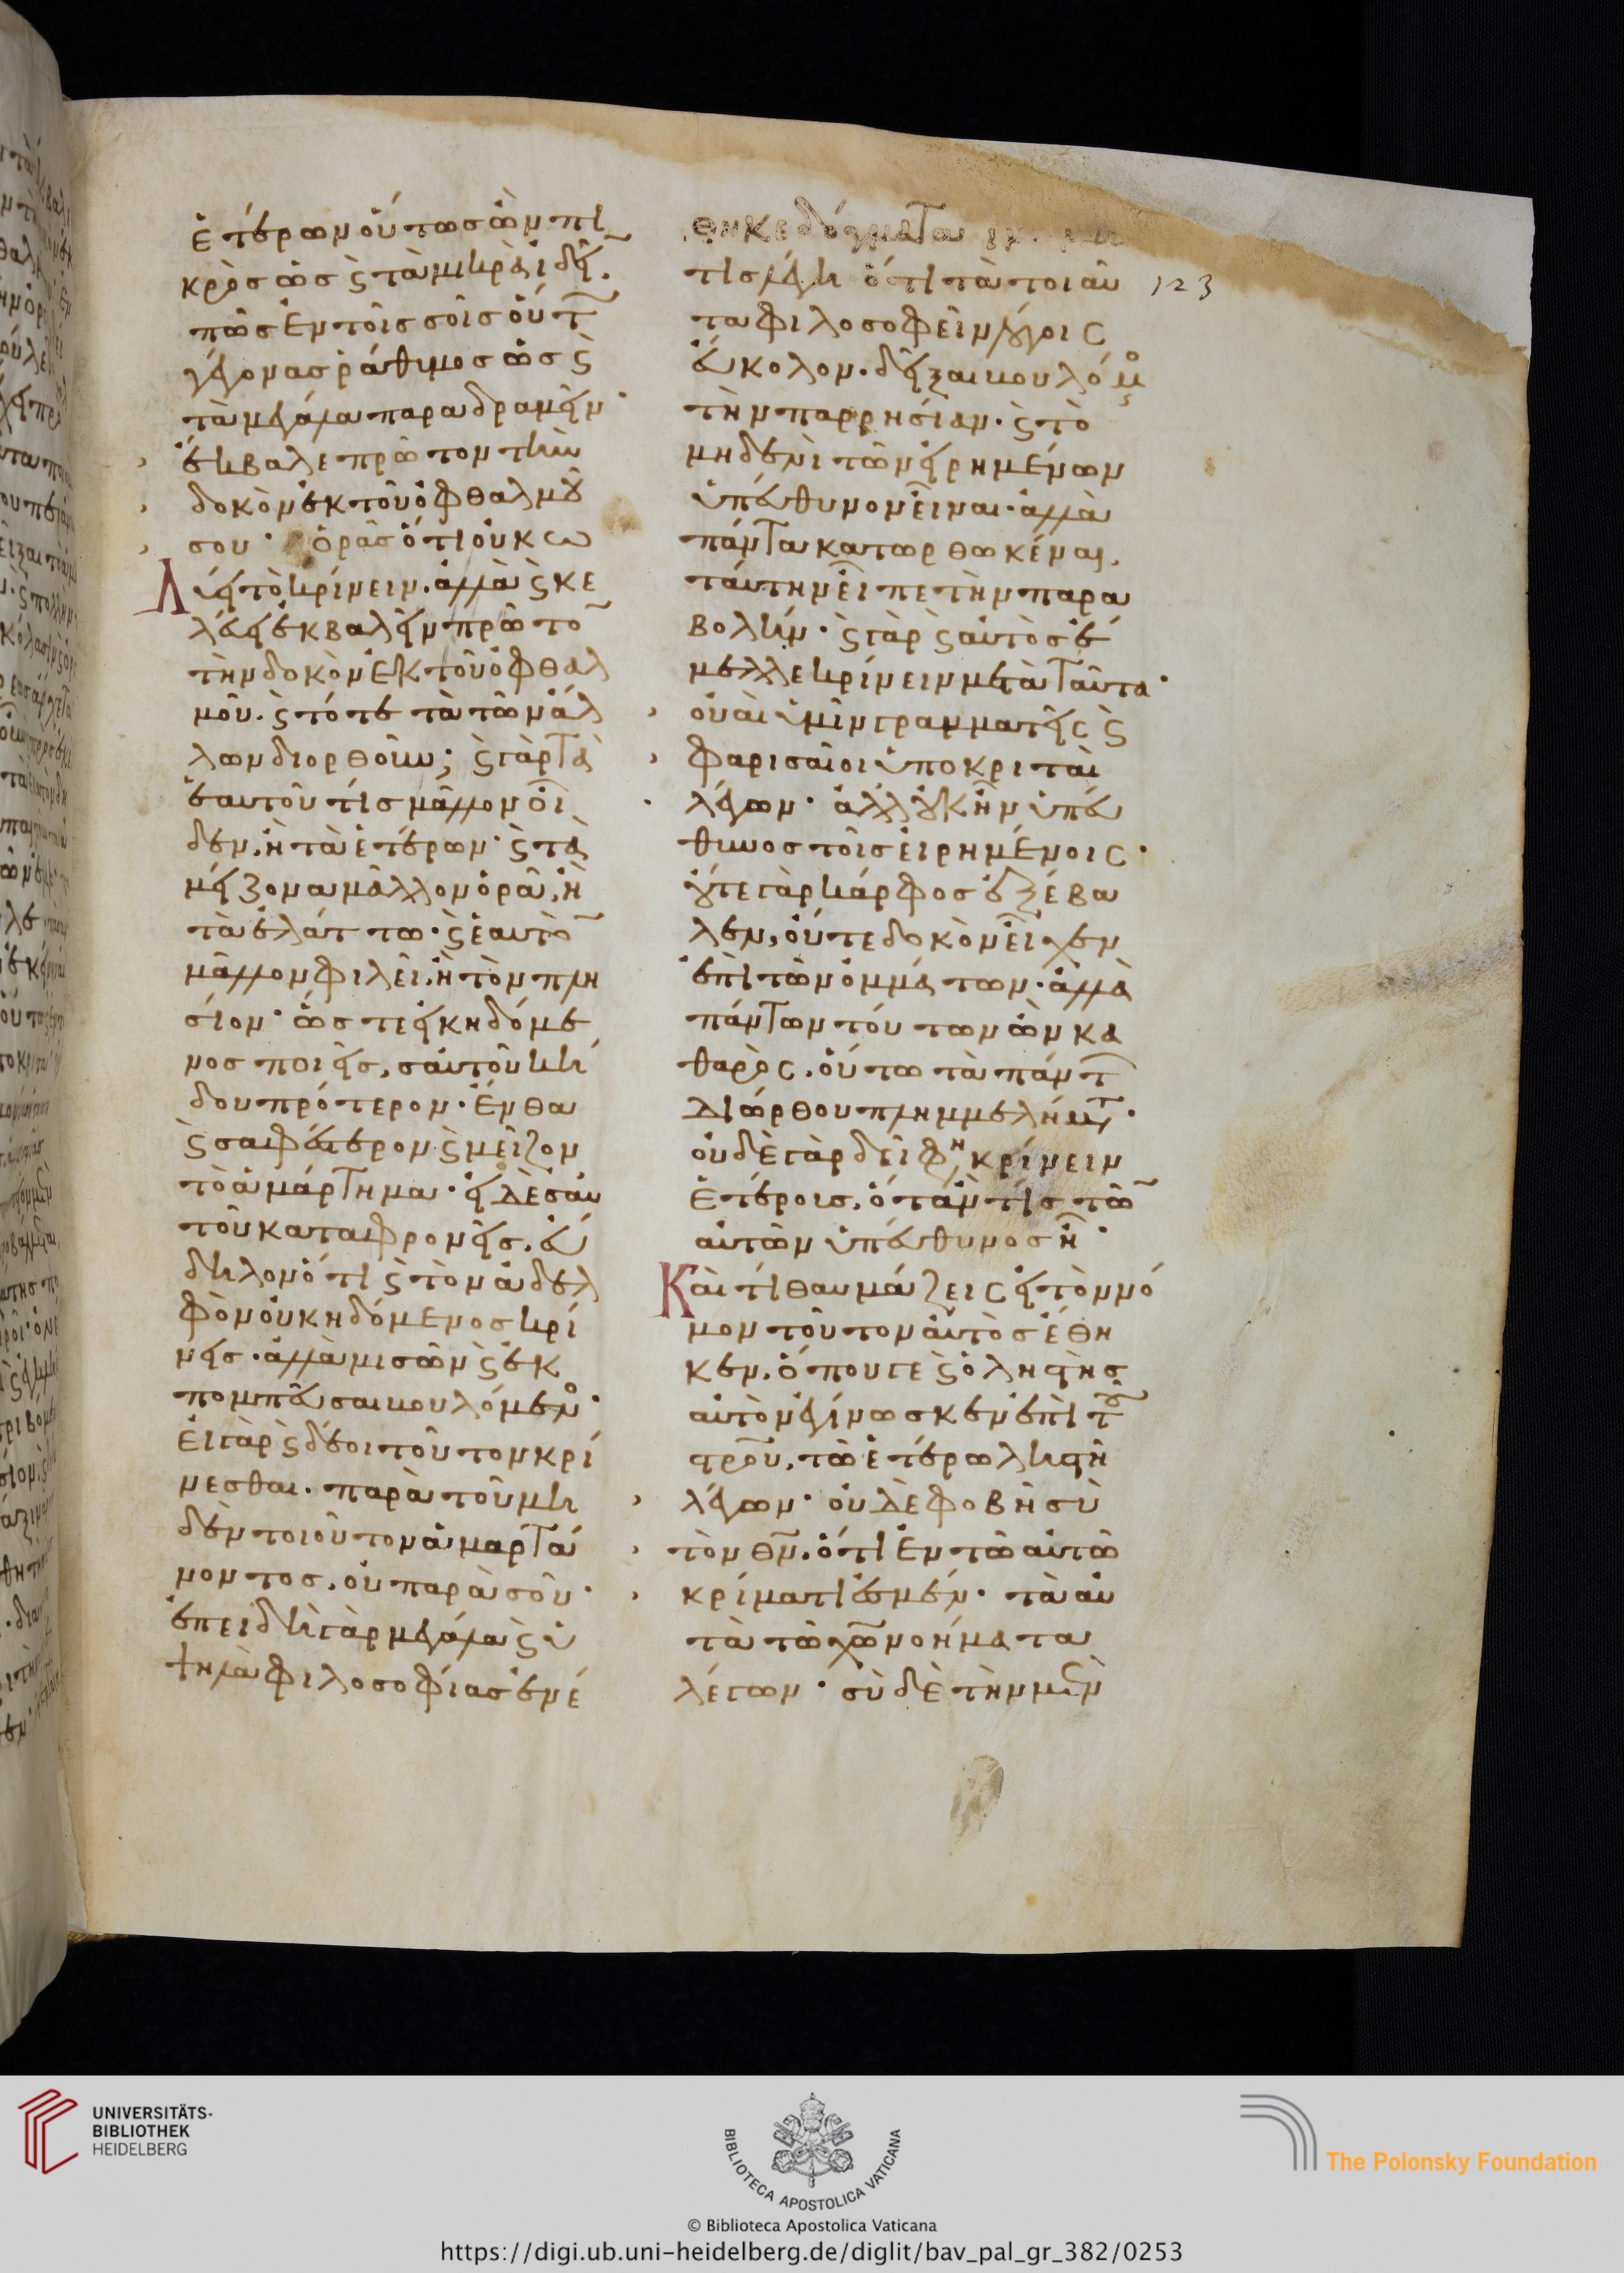 ἑτέρων οὕτως ὢν πι
κρὸς ὡς ϛ τὰ μικρὰ ἰδεῖ̅.
πῶς ἐν τοῖς σοῖς οὕτ
γέγονας ῥάθυμος ὡς ϛ
τὰ μεγάλα παραδραμεῖν·
ἔκβαλε πρῶτον τὴν
δοκὸν ἐκ τοῦ ὀφθαλμοῦ
σου· Ὁρᾶς ὅτι οὐ κω
λύει τὸ κρίνειν. ἀλλὰ ϛ κε
λεύει ἐκβαλεῖν πρῶτο̅
τὴν δοκὸν ἐκ τοῦ ὀφθαλ
μοῦ. ϛ τότε τὰ τῶν ἄλ
λων διορθοῦν; ϛ γὰρ τὰ
ἑαυτοῦ τίς μᾶλλον οἶ
δεν, ἢ τὰ ἑτέρων· ϛ τὰ
μείζονα μᾶλλον ὁρᾶ, ἢ
τὰ ἐλάττω· ϛ ἑαυτὸ̅
μᾶλλον φιλεῖ, ἢ τὸν πλη
σίον· ὥστε εἰ κηδόμε
νος ποιεῖς, σαυτοῦ κή
δου πρότερον· ἔνθα
ϛ σαφέστερον ϛ μεῖζον
τὸ ἁμάρτημα· εἰ δὲ σαυ
τοῦ καταφρονεῖς, εὔ
δηλον ὅτι ϛ τὸν ἀδελ
φὸν οὐ κηδόμενος κρί
νεις· ἀλλὰ μισῶν ϛ ἐκ
πομπεῦσαι βουλόμενο·
Εἰ γὰρ ϛ δέοι τοῦτον κρί
νεσθαι. παρὰ τοῦ μη
δὲν τοιοῦτον ἁμαρτά
νοντος, οὐ παρὰ σοῦ·
ἐπειδὴ γὰρ μεγάλα ϛ ὑ
ψηλὰ φιλοσοφίας ἐνέ
θηκε δόγματα
τις λέγη ὅτι τὰ τοιαῦ
τα φιλοσοφεῖν λόγοις
εὔκολον· δεῖξαι βουλόμο
τὴν παρρησίαν· ϛ τὸ
μηδενὶ τῶν εἰρημένων
ὑπεύθυνον εἶναι· ἀλλὰ
πάντα κατωρθωκέναι,
ταύτην εἶπε τὴν παρα
βολήν· ϛ γὰρ ϛ αὐτὸς ἔ
μελλε κρίνειν μετὰ ταῦτα·
οὐαὶ ὑμῖν γραμματεῖς ϛ
φαρισαῖοι ὑποκριταὶ
λέγων· ἀλλ' οὐκ ἦν ὑπεύ
θυνος τοῖς εἰρημένοις·
οὔτε γὰρ κάρφος ἐξέβα
λεν, οὔτε δοκὸν εἶχεν
ἐπὶ τῶν ὀμμάτων· ἀλλὰ
πάντων τούτων ὢν κα
θαρὸς, οὕτω τὰ πάντ
διώρθου πλημμελήματ·
οὐδὲ γὰρ δεῖ φη κρίνειν
ἑτέροις, ὅταν τίς τῶ̅
αὐτῶν ὑπεύθυνος ἦ·
Καὶ τί θαυμάζεις εἰ τὸν νό
μον τοῦτον αὐτὸς ἔθη
κεν, ὅπου γε ϛ ὁ ληστὴς
αὐτὸν ἐγίνωσκεν ἐπὶ τοῦ
σ̅ρ̅ο̅υ̅, τῶ ἑτέρω ληστῆ
λέγων· οὐδὲ φοβῆ σὺ
τὸν θ̅ν̅, ὅτι ἐν τῶ αὐτῶ
κρίματι ἐσμέν· τὰ αὐ
τὰ τῶ χ̅ω̅ νοήματα
λέγων· σὺ δὲ τὴν μὲν
123
UNIVERSITÄTS-
BIBLIOTHEK
HEIDELBERG
BIBLIOTECA APOSTOLICA VATICANA
The Polonsky Foundation
© Biblioteca Apostolica Vaticana
https://digi.ub.uni-heidelberg.de/diglit/bav_pal_gr_382/0253